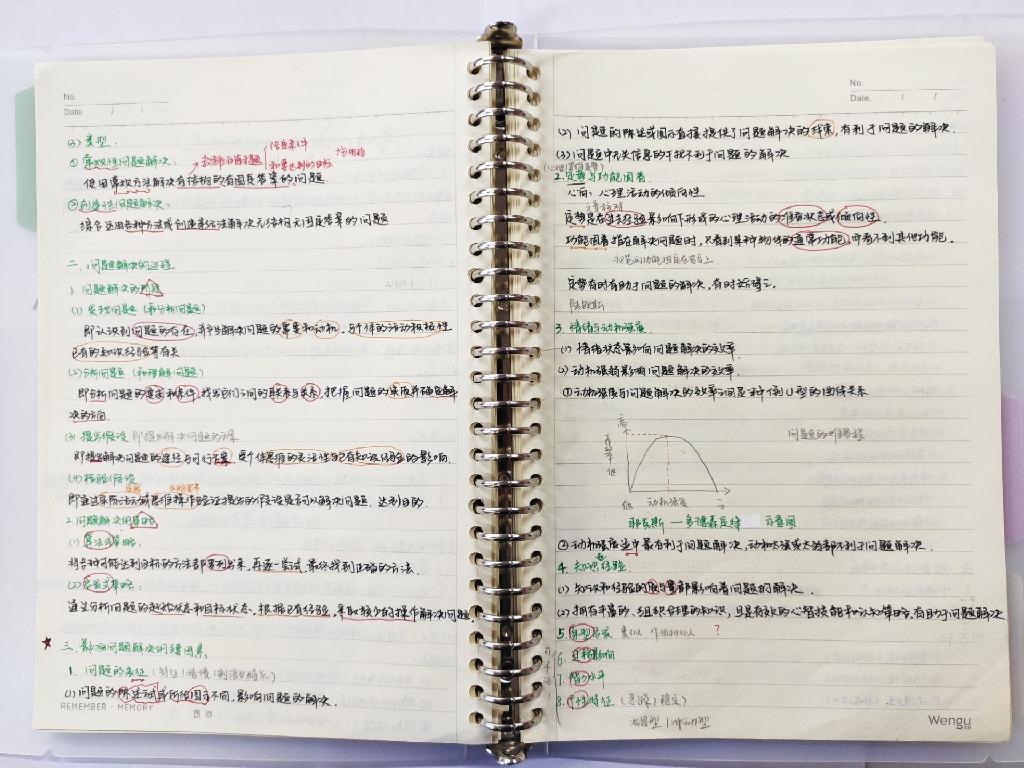 No.
Date. / /
(3) 类型:
① 常规性问题解决:
使用常规方法解决有结构的有固定答案的问题
② 创造性问题解决:
综合运用各种方法或创造新方法解决无结构无固定答案的问题
二、问题解决的过程
1. 问题解决的阶段
(1) 发现问题 (和分析问题)
即认识到问题的存在, 并产生解决问题的需要和动机, 与个体的活动积极性
已有的知识经验等有关
(2) 分析问题 (和理解问题)
即分析问题的要求和条件, 找出它们之间的联系与关系, 把握问题的实质并确定解
决的方向.
(3) 提出假设 即提出解决问题的方案
即提出解决问题的途径与可行方案, 受个体思维的灵活性与已有知识经验的影响.
(4) 检验假设
即通过实际活动或思维操作验证提出的假设是否可以解决问题, 达到目的.
2. 问题解决的策略
(1) 算法式策略:
将各种可能达到目标的方法都要列出来, 再逐一尝试, 最终找到正确的方法.
(2) 启发式策略:
通过分析问题的起始状态和目标状态, 根据已有经验, 采取较少的操作解决问题
三、影响问题解决的主要因素
1. 问题的表征
(1) 问题的陈述方式或所给图示不同, 影响问题的解决
REMEMBER · MEMORY
No.
Date. / /
(2) 问题的陈述或图示直接提供了问题解决的线索, 有利于问题的解决.
(3) 问题中无关信息的干扰不利于问题的解决
2. 定势与功能固着
心向: 心理活动的倾向性
定势是在过去经验影响下形成的心理活动的准备状态或倾向性.
功能固着指在解决问题时, 只看到某种物体的通常功能, 而看不到其他功能.
定势有时有助于问题的解决, 有时会妨碍.
3. 情绪与动机强度
(1) 情绪状态影响问题解决的效率
(2) 动机强弱影响问题解决的效率.
① 动机强度与问题解决的效率之间是一种倒U型的曲线关系
高
效率
低
低 动机强度 高
问题的难易程度
耶克斯—多德森定律 示意图
② 动机强度适中最有利于问题解决, 动机太强或太弱都不利于问题解决.
4. 知识经验
(1) 知识和经验的质与量都影响着问题的解决.
(2) 拥有丰富的、组织合理的知识, 且是有效的心智技能和认知策略, 有助于问题解决
5. 原型启发 类似 作用相似 ?
6. 迁移影响
7. 智力水平
8. 个性特征
沉思型 / 冲动型
Wengu